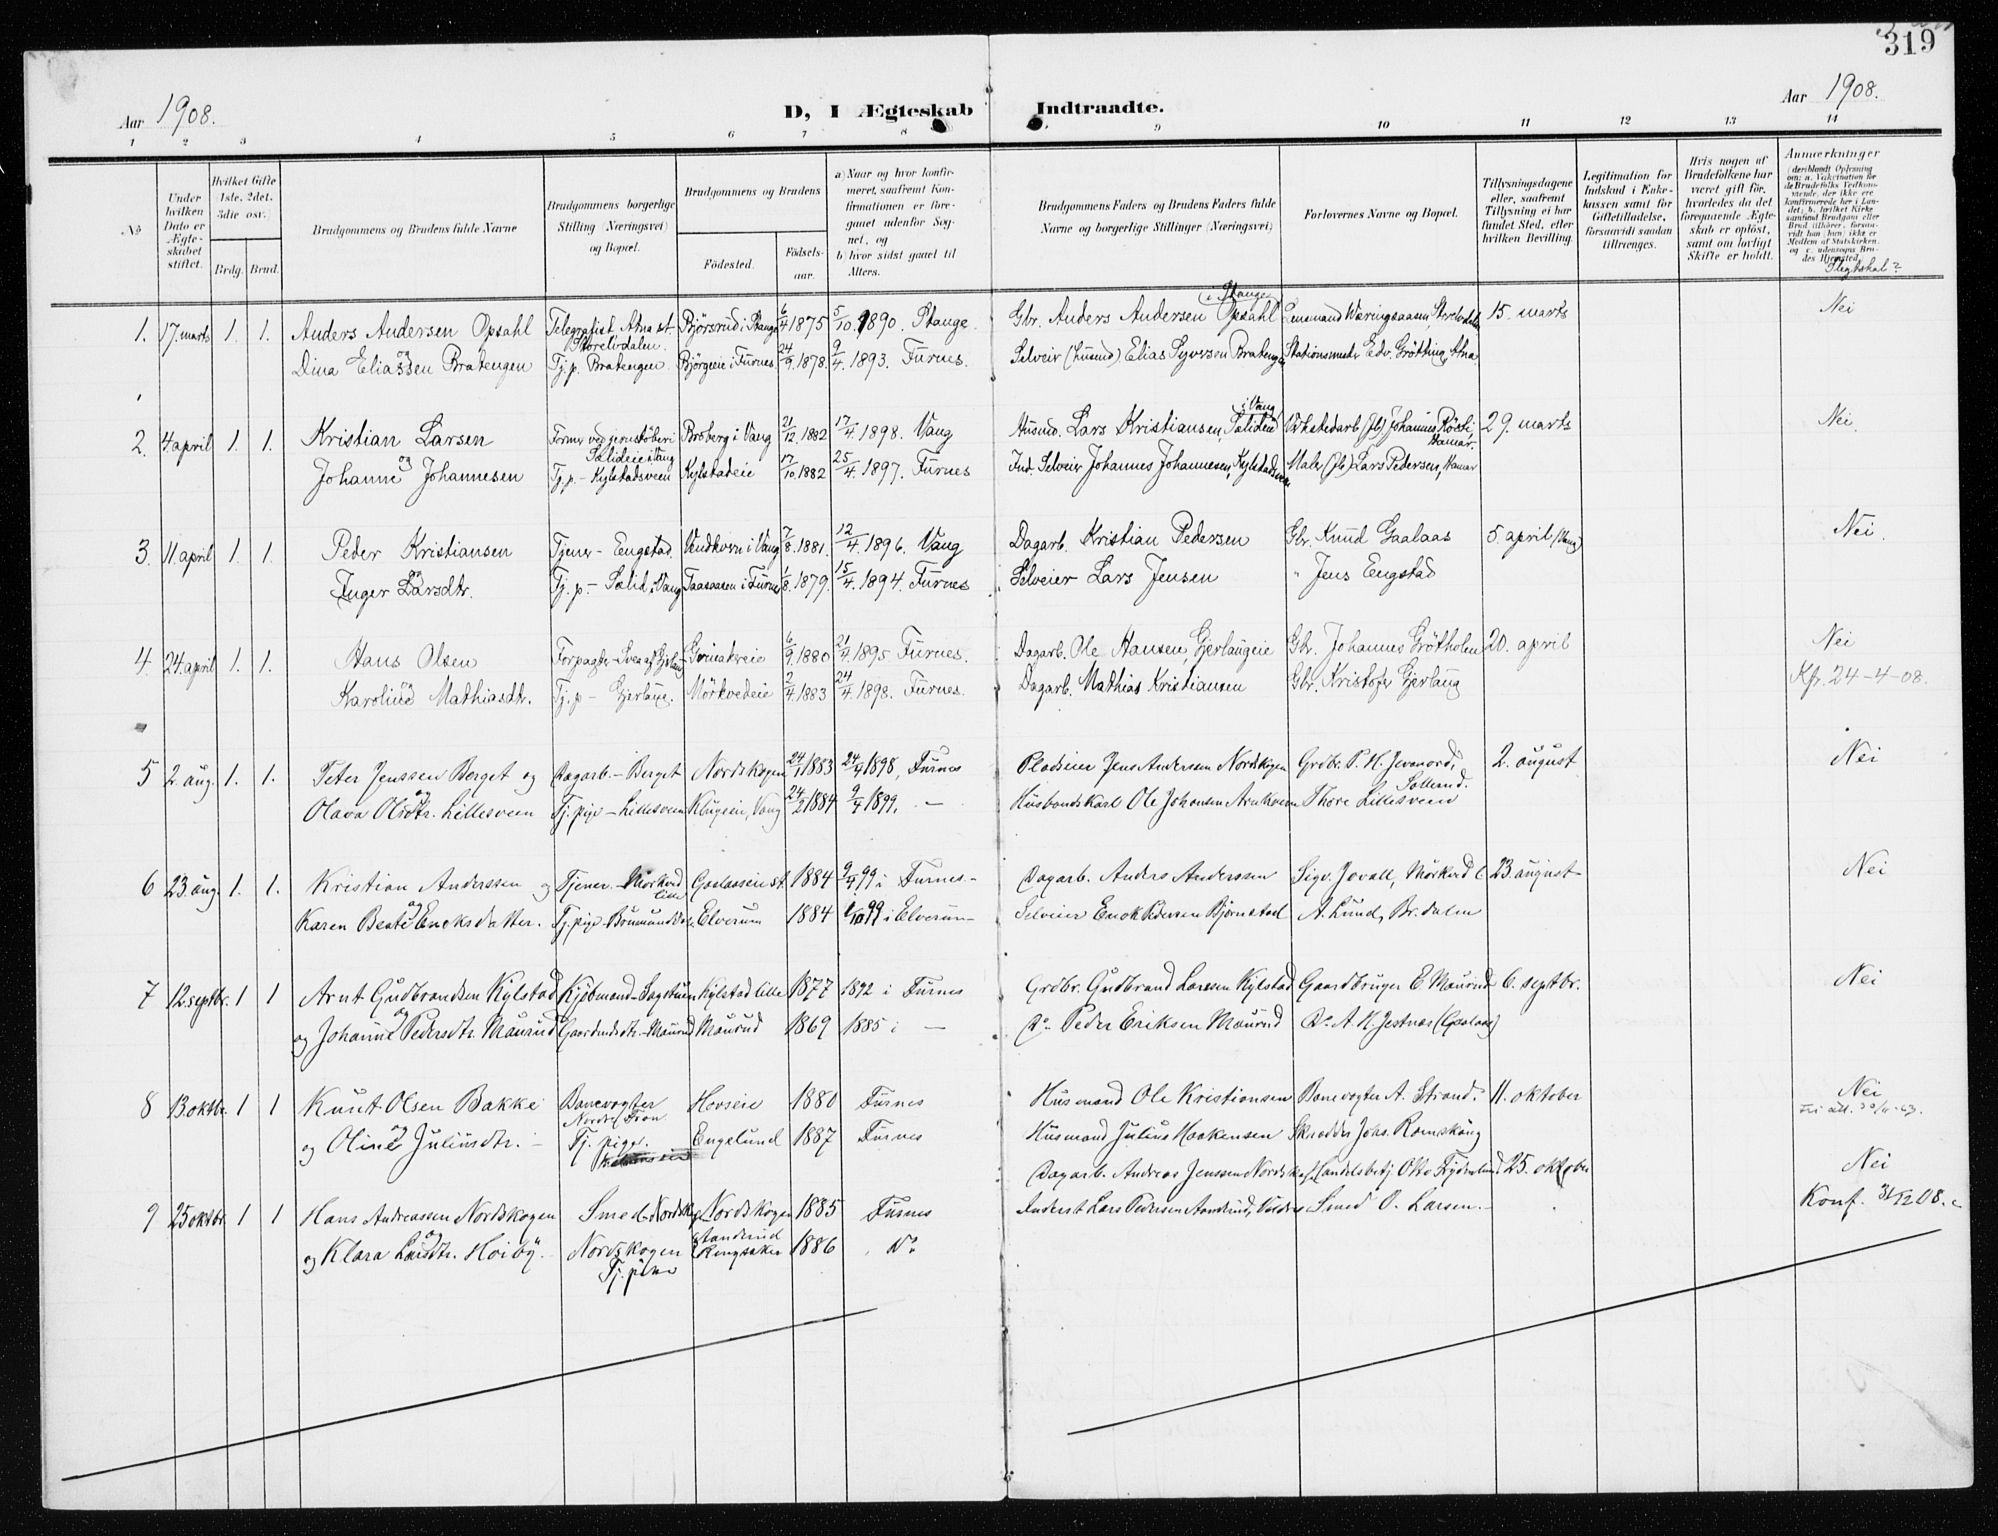 319
Aar 1908.
D, I Ægteskab Indtraadte.
Aar 1908.
1 2 3 4 5 6 7 8 9 10 11 12 13 14
No
Under hvilken Dato er Ægteskabet stiftet.
Hvilket Gifte 1ste, 2det, 3die osv.
Brdg. Brud.
Brudgommens og Brudens fulde Navne
Brudgommens borgerlige Stilling (Næringsvei) og Bopæl.
Brudgommens og Brudens
Fødested.
Fødselsaar.
a) Naar og hvor konfirmeret, saafremt Konfirmationen er foregaaet udenfor Sognet, og
b) hvor sidst gaaet til Alters.
Brudgommens Faders og Brudens Faders fulde Navne og borgerlige Stillinger (Næringsvei)
Forlovernes Navne og Bopæl.
Tillysningsdagene eller, saafremt Tillysning ei har fundet Sted, efter hvilken Bevilling.
Legitimation for Indskud i Enkekassen samt for Giftetilladelse, forsaavidt saadan tiltrænges.
Hvis nogen af Brudefolkene har været gift før, hvorledes da det foregaaende Ægteskab er opløst, samt om lovligt Skifte er holdt.
Anmærkninger
(deriblandt Oplysning om: a. Vaksination for de Brudefolks Vedkommende, der ikke ere konfirmerede her i Landet; b. hvilket Kirkesamfund Brudgom eller Brud tilhører, forsaavidt han (hun) ikke er Medlem af Statskirken, og c. udensogns Brudes Hjemsted.
Slegtskab?
1. 17. marts 1. 1. Anders Andersen Opsahl Telegrafist, Atna st. Storelvdalen. Bjørsrud i Stange 6/4 1875 5/10. 1890. Stange. Gbr. Anders Andersen Opsahl (i Stange) Lensmand Wæringsaasen, Storelvdalen 15. marts Nei
og Dina Eliassen Bratengen Tj. p. Bratengen. Bjørgeie i Furnes. 24/9. 1878. 9/4. 1893. Furnes. Selveir (husmd) Elias Syverson Bratengen Stationsmester Edv. Grötting, Atna
2. 4. april 1. 1. Kristian Larsen Former ved jernstøberi Salideie i Vang Broberg i Vang 21/12. 1882 17/4. 1898. Vang Husmd. Lars Kristiansen, Salideie i Vang Verkstedarb. (Jb) Johannes Hamar. 29. marts Nei.
og Johanne Johannesen Tj. p. - Kylstadsveen Kylstadeie 17/10. 1882 25/4. 1897. Furnes Ind. Selveier Johannes Johannesen, Kylstadsveen Maler (Jb) Lars Pedersen, Hamar
3. 11. april 1. 1. Peder Kristiansen Tjener - Engstad Vendkvern i Vang 7/8. 1881. 12/4. 1896. Vang Dagarb. Kristian Pedersen Gbr. Knud Gaalaas 5. april (Vang) Nei.
og Inger Larsdtr. Tj. p. - Salid i Vang Taasaasen i Furnes 1/8. 1879. 15/4. 1894. Furnes Selveier Lars Jensen " Jens Engstad
4. 24. april 1. 1. Hans Olsen Forpagter - Svea af Gjerlaug 6/9. 1880 21/4. 1895 Furnes. Dagarb. Ole Hansen, Gjerlaugeie Gbr. Johannes Grötholen 20. april Nei
og Karoline Mathiasdtr. Tj. p - Gjerlaug. Mörkvedeie 2/4. 1883 24/4. 1898. Furnes. Dagarb. Mathias Kristiansen Gbr. Kristofer Gjerlaug Kfr. 24-4-08.
5 2. aug. 1. 1. Peter Jenssen Berget og Dagarb. - Berget Nordskogen 24/1 1883 24/4 1898, Furnes Pladseier Jens Anderssen Nordskogen Grdbr. P. H. Jevanord, Sollerud. 2. august Nei
og Olava Olsdtr. Lillesveen Tj. pige - Lillesveen Klugseie, Vang 24/2 1884 9/4 1899. - Husbondskarl Ole Johansen Arnkvern Thore Lillesveen
6 23 aug. 1. 1. Kristian Anderssen og Tjener. Mörkved lille Gaalaaseie st. 1884 9/4 99 i Furnes - Dagarb. Anders Anderssen Sigv. Jevall, Mörkved l. 23. august - Nei
og Karen Beate Enoksdatter. Tj. pige - Brumunddal. Elverum 1884 1/10 99 i Elverum - Selveier Enok Pedersen Bjørnstad A. Lund, Br.dalen
7 12. septbr. 1 1 Arnt Gudbrandsen Kylstad Kjøbmand - Sagstuen Kylstad lille 1877 1892 i Furnes Grdbr. Gudbrand Larsen Kylstad Gaardbruger E Maurud 6. septbr. Nei
og Johanne Pedersdtr. Maurud Gaardmdsdtr. - Maurud Maurud 1869 1885 i - Do. Peder Eriksen Maurud Do. A. H. Jestnæs (Gaalaas)
8 13 oktbr. 1 1 Knut Olsen Bakke Banevogter Nordre Fron Hovseie 1880 Furnes Husmand Ole Kristiansen Banevogter A. Strand. 11. oktober Nei
og Oline Juliusdtr. - Tj. pige. Engelund 1887 Furnes Husmand Julius Haakensen Skrædder Johs. Romskaug
9 25 oktbr. 1 1 Hans Andreassen Nordskogen Smed - Nordsk. Nordskogen 1885 Furnes Dagarb. Andreas Jenssen Nordskogen Handelsbetj. Otto Frydenlund 25. oktober Nei
og Klara Larsdtr. Høiby. - Nordskogen Tj. pike Ringsaker 1886 Do Inderst Lars Pedersen Smed O. Larsen. - Konf. 31/12 08.